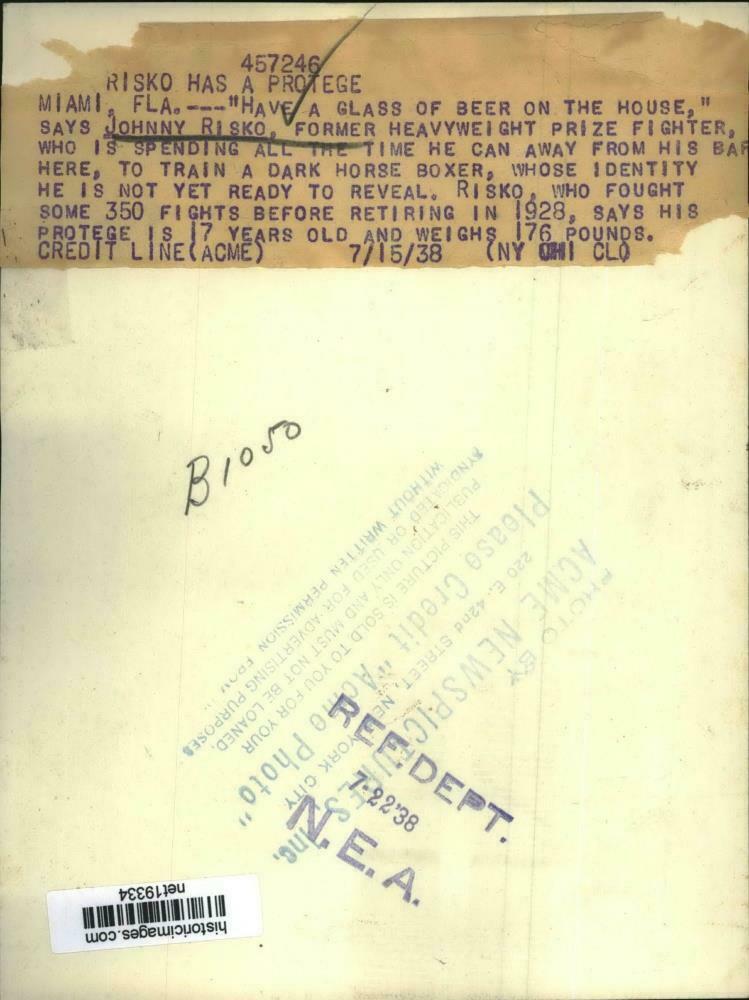 457246
RISKO HAS A PROTEGE
MIAMI, FLA.---"HAVE A GLASS OF BEER ON THE HOUSE,"
SAYS JOHNNY RISKO, FORMER HEAVYWEIGHT PRIZE FIGHTER,
WHO IS SPENDING ALL THE TIME HE CAN AWAY FROM HIS BAR
HERE, TO TRAIN A DARK HORSE BOXER, WHOSE IDENTITY
HE IS NOT YET READY TO REVEAL. RISKO, WHO FOUGHT
SOME 350 FIGHTS BEFORE RETIRING IN 1928, SAYS HIS
PROTEGE IS 17 YEARS OLD AND WEIGHS 176 POUNDS.
CREDIT LINE(ACME) 7/15/38 (NY CHI CLO
B1050
PHOTO BY
ACME NEWSPICTURES Inc.
220 E. 42nd STREET, NEW YORK CITY
Please Credit "Acme Photo"
THIS PICTURE IS SOLD TO YOU FOR YOUR
PUBLICATION ONLY AND MUST NOT BE LOANED,
SYNDICATED OR USED FOR ADVERTISING PURPOSES
WITHOUT WRITTEN PERMISSION FROM
REF. DEPT.
7-22'38
N.E.A.
historicimages.com
net19334